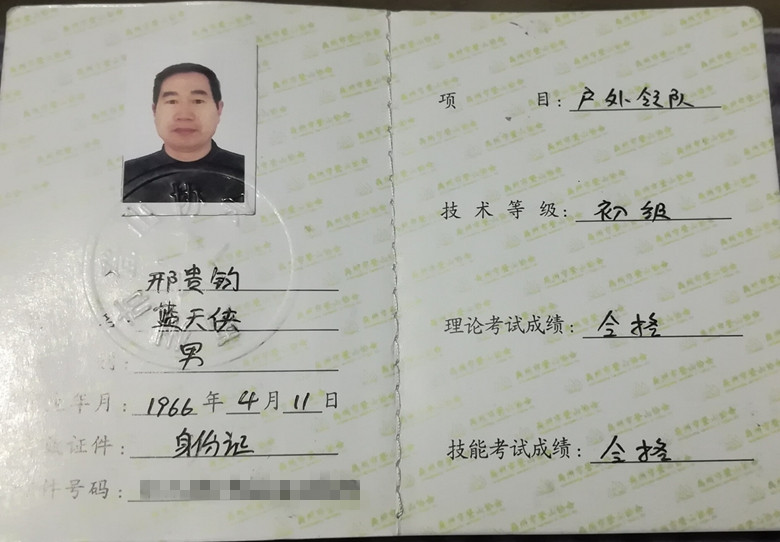 邢贵钧
蓝天侠
男
年月：1966年4月11日
证件：身份证
件号码：
项目：户外领队
技术等级：初级
理论考试成绩：合格
技能考试成绩：合格